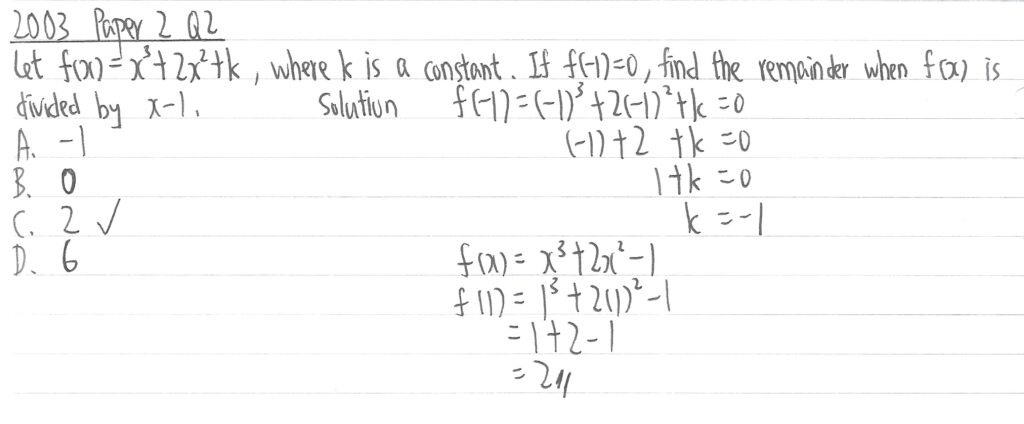 2003 Paper 2 Q2
Let f(x) = x³ + 2x² + k, where k is a constant. If f(-1)=0, find the remainder when f(x) is
divided by x-1. Solution f(-1) = (-1)³ + 2(-1)² + k = 0
A. -1 (-1) + 2 + k = 0
B. 0 1 + k = 0
C. 2 ✓ k = -1
D. 6 f(x) = x³ + 2x² - 1
f(1) = 1³ + 2(1)² - 1
= 1 + 2 - 1
= 2//